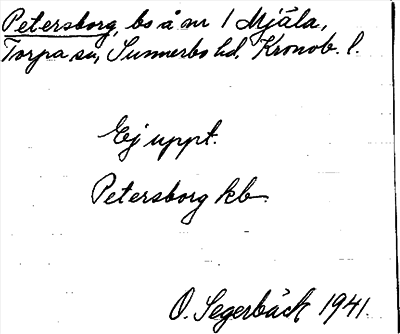 Petersborg, bs å nr 1 Mjäla,
Torpa sn, Sunnerbo hd, Kronob. l.
Ej uppt.
Petersborg kb
O. Segerbäck 1941.